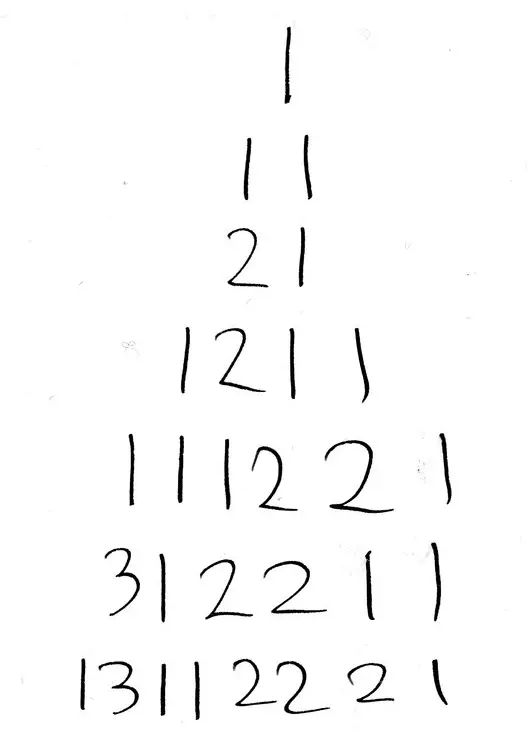 1
11
21
1211
111221
312211
13112221